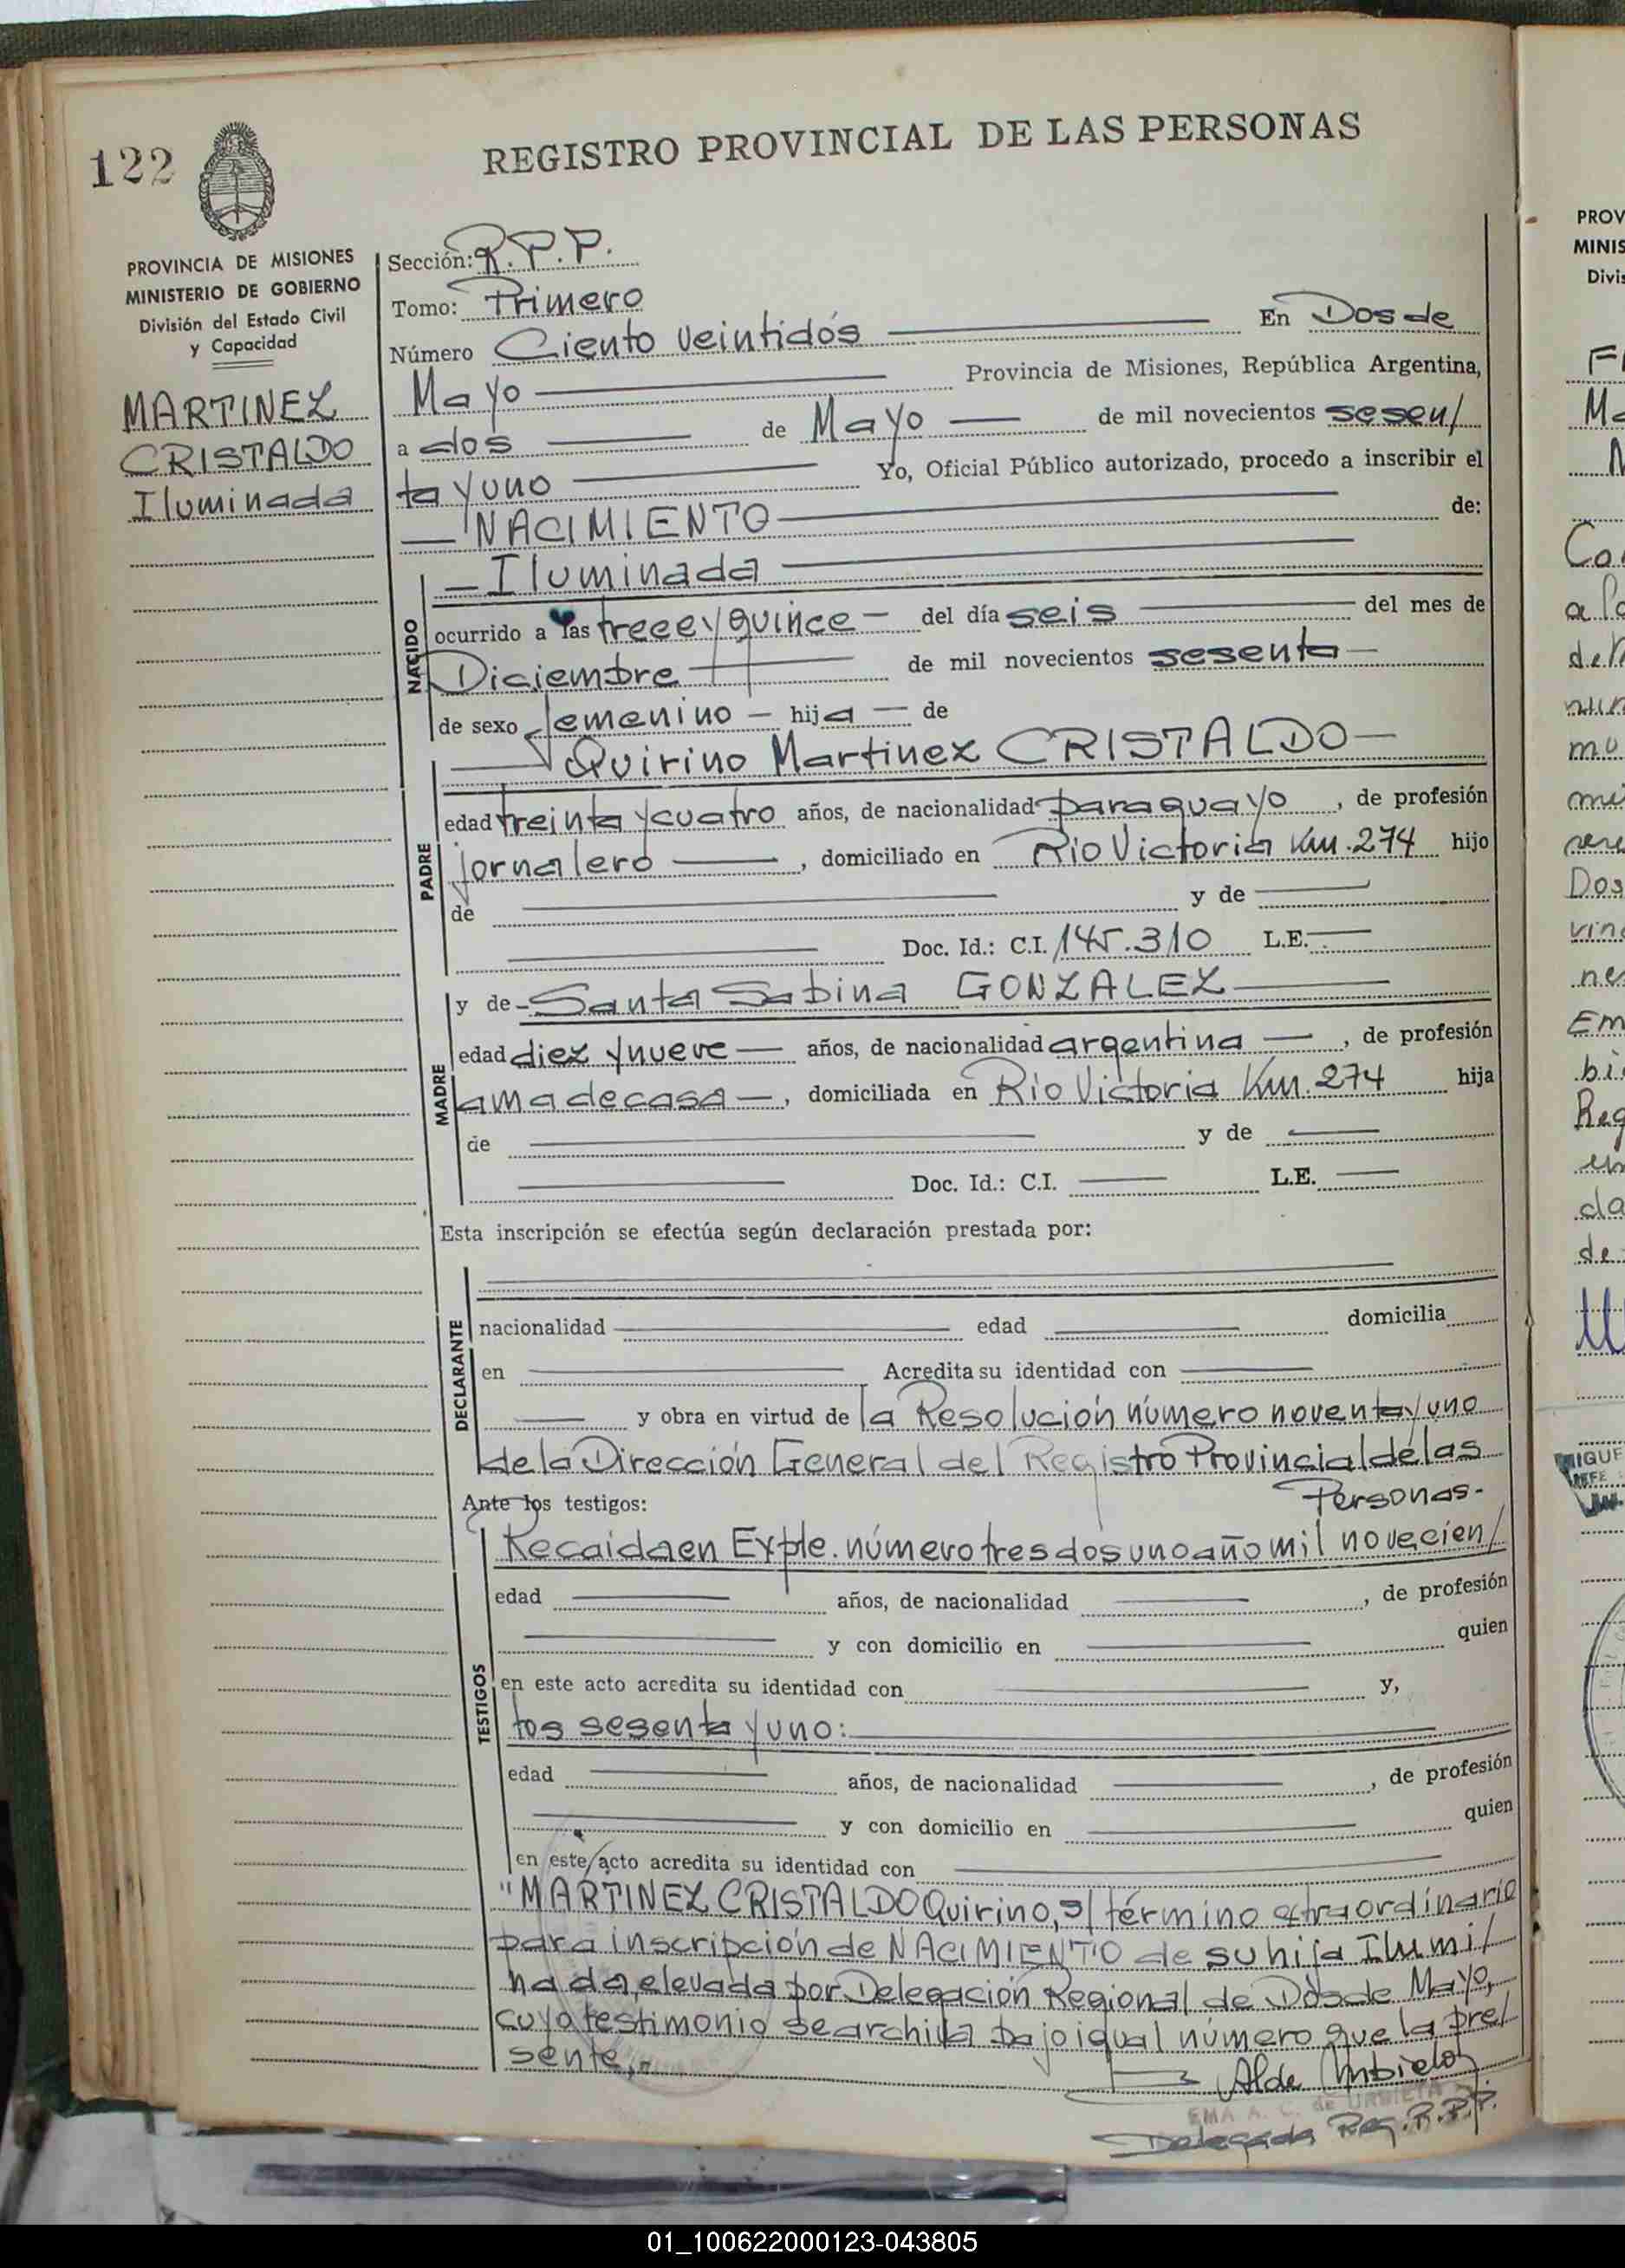 122
REGISTRO PROVINCIAL DE LAS PERSONAS
PROVINCIA DE MISIONES
MINISTERIO DE GOBIERNO
División del Estado Civil
y Capacidad
MARTINEZ
CRISTALDO
Iluminada
Sección: R.P.P.
Tomo: Primero
Número Ciento veintidós En Dos de
Mayo Provincia de Misiones, República Argentina,
a dos de Mayo de mil novecientos sesen/
ta y uno Yo, Oficial Público autorizado, procedo a inscribir el
NACIMIENTO de:
Iluminada
NACIDO
ocurrido a las trece y quince del día seis del mes de
Diciembre de mil novecientos sesenta
de sexo femenino hija de
Quirino Martinez CRISTALDO
PADRE
edad treinta y cuatro años, de nacionalidad paraguayo, de profesión
jornalero, domiciliado en Rio Victoria Km. 274 hijo
de y de
Doc. Id.: C.I. 145.310 L.E.
MADRE
y de Santa Sabina GONZALEZ
edad diez y nueve años, de nacionalidad argentina, de profesión
ama de casa, domiciliada en Rio Victoria Km. 274 hija
de y de
Doc. Id.: C.I. L.E.
Esta inscripción se efectúa según declaración prestada por:
DECLARANTE
nacionalidad edad domicilia
en Acredita su identidad con
y obra en virtud de la Resolución número noventa y uno
de la Dirección General del Registro Provincial de las
Personas.-
Ante los testigos:
TESTIGOS
Recaida en Expte. número tres dos uno año mil novecien/
edad años, de nacionalidad, de profesión
y con domicilio en quien
en este acto acredita su identidad con y,
tos sesenta y uno:
edad años, de nacionalidad, de profesión
y con domicilio en quien
en este acto acredita su identidad con
"MARTINEZ CRISTALDO Quirino, s/ término extraordinario
para inscripción de NACIMIENTO de su hija Ilumi/
nada, elevada por Delegación Regional de Dos de Mayo,
cuyo testimonio se archiva bajo igual número que la pre/
sente.-
EMA A. C. de URBIETA
Delegada Reg. R.P.P.
PROV
MINIS
Divis
01_100622000123-043805